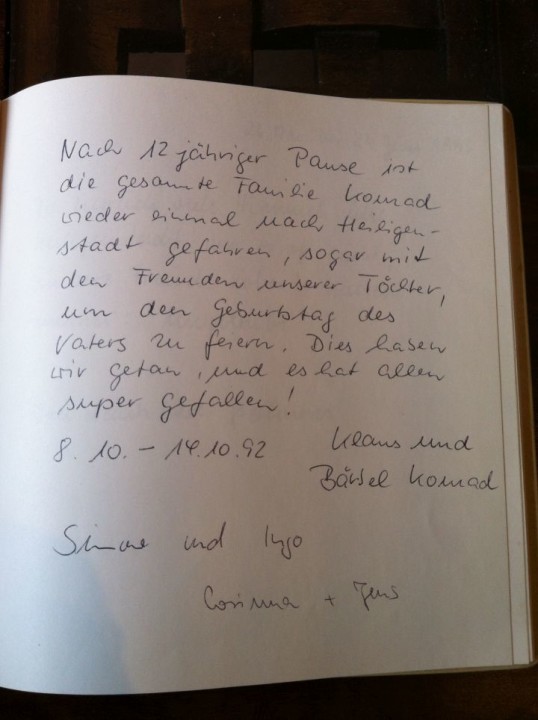 Nach 12 jähriger Pause ist
die gesamte Familie Konrad
wieder einmal nach Heiligen-
stadt gefahren, sogar mit
den Freunden unserer Töchter,
um den Geburtstag des
Vaters zu feiern. Dies haben
wir getan, und es hat allen
super gefallen!
8. 10. – 14.10.92 Klaus und
Bärbel Konrad
Simone und Ingo
Corinna + Jens